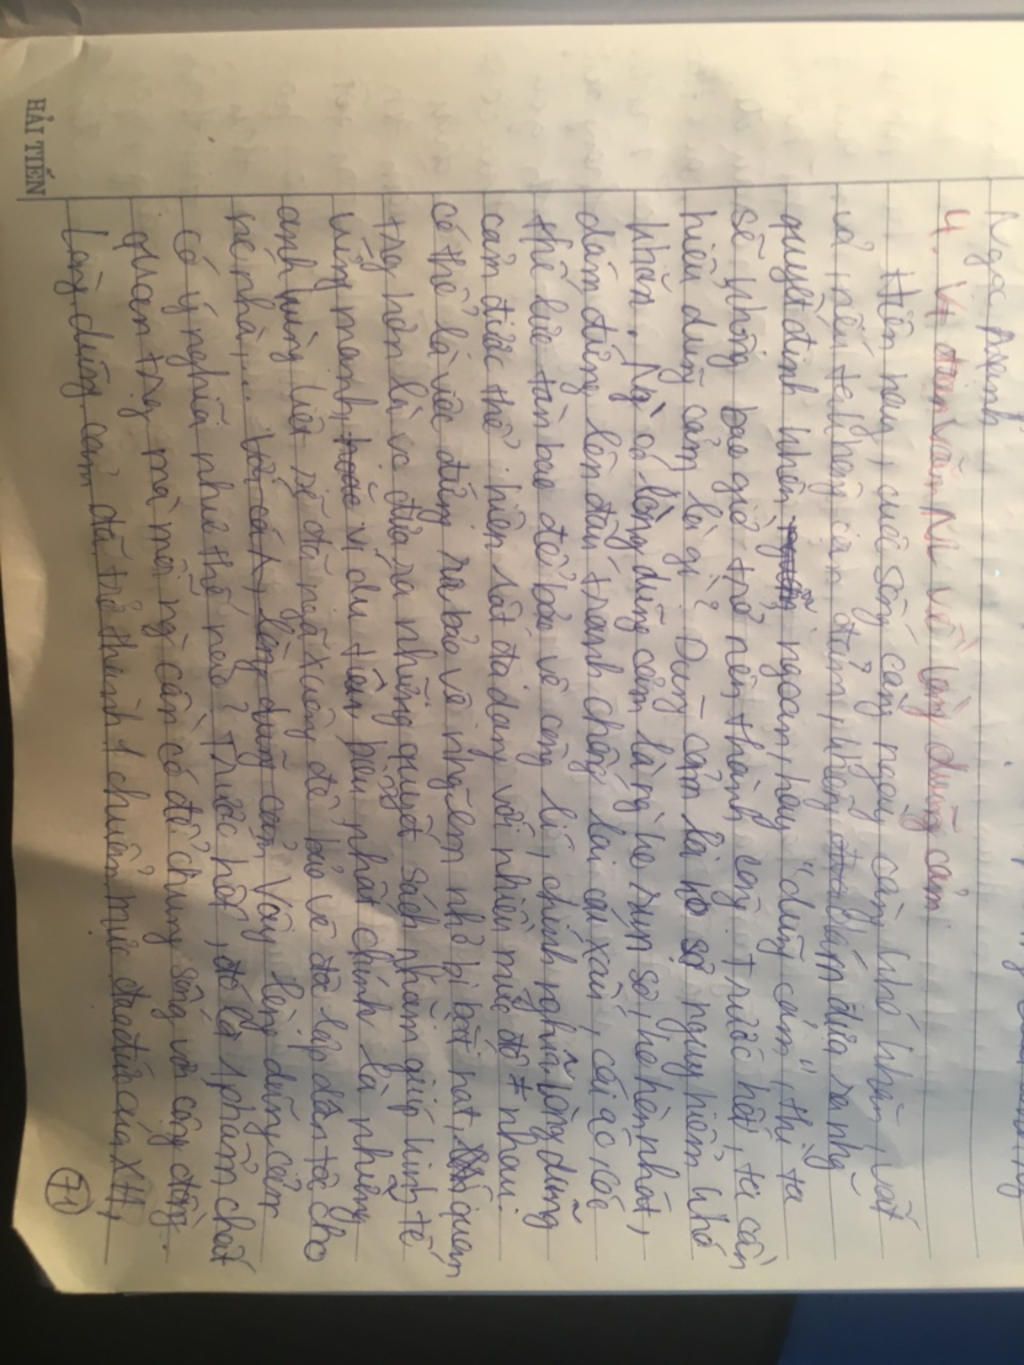 Ngọc Mạnh
4. Vt đoạn văn NL về lòng dũng cảm
Hiện nay, cuộc sống càng ngày càng khó khăn, vất
vả, nếu ta không can đảm, không dám đưa ra những
quyết định khôn ngoan, hay "dũng cảm", thì ta
sẽ không bao giờ trở nên thành công. Trước hết, ta cần
hiểu dũng cảm là gì? Dũng cảm là ko sợ nguy hiểm khó
khăn. Ng` có lòng dũng cảm là ng` ko run sợ, ko hèn nhát,
dám đứng lên đấu tranh chống lại cái xấu, cái ác, các
thế lực tàn bạo để bảo vệ công lí, chính nghĩa. Lòng dũng
cảm được thể hiện rất đa dạng với nhiều mức độ ≠ nhau:
có thể là việc đứng ra bảo vệ những em nhỏ bị bắt nạt, quan
trọng hơn là vc đưa ra những quyết sách nhằm giúp kinh tế
vững mạnh, ví dụ tiêu biểu nhất chính là những
anh hùng liệt sĩ đã ngã xuống để bảo vệ độc lập dân tộc cho
nc nhà,... Vậy lòng dũng cảm
có ý nghĩa như thế nào? Trước hết, đó là 1 phẩm chất
quan trọng mà mỗi ng` cần có để chung sống với cộng đồng.
Lòng dũng cảm đã trở thành 1 chuẩn mực đạo đức của XH,
71
HẢI TIẾN